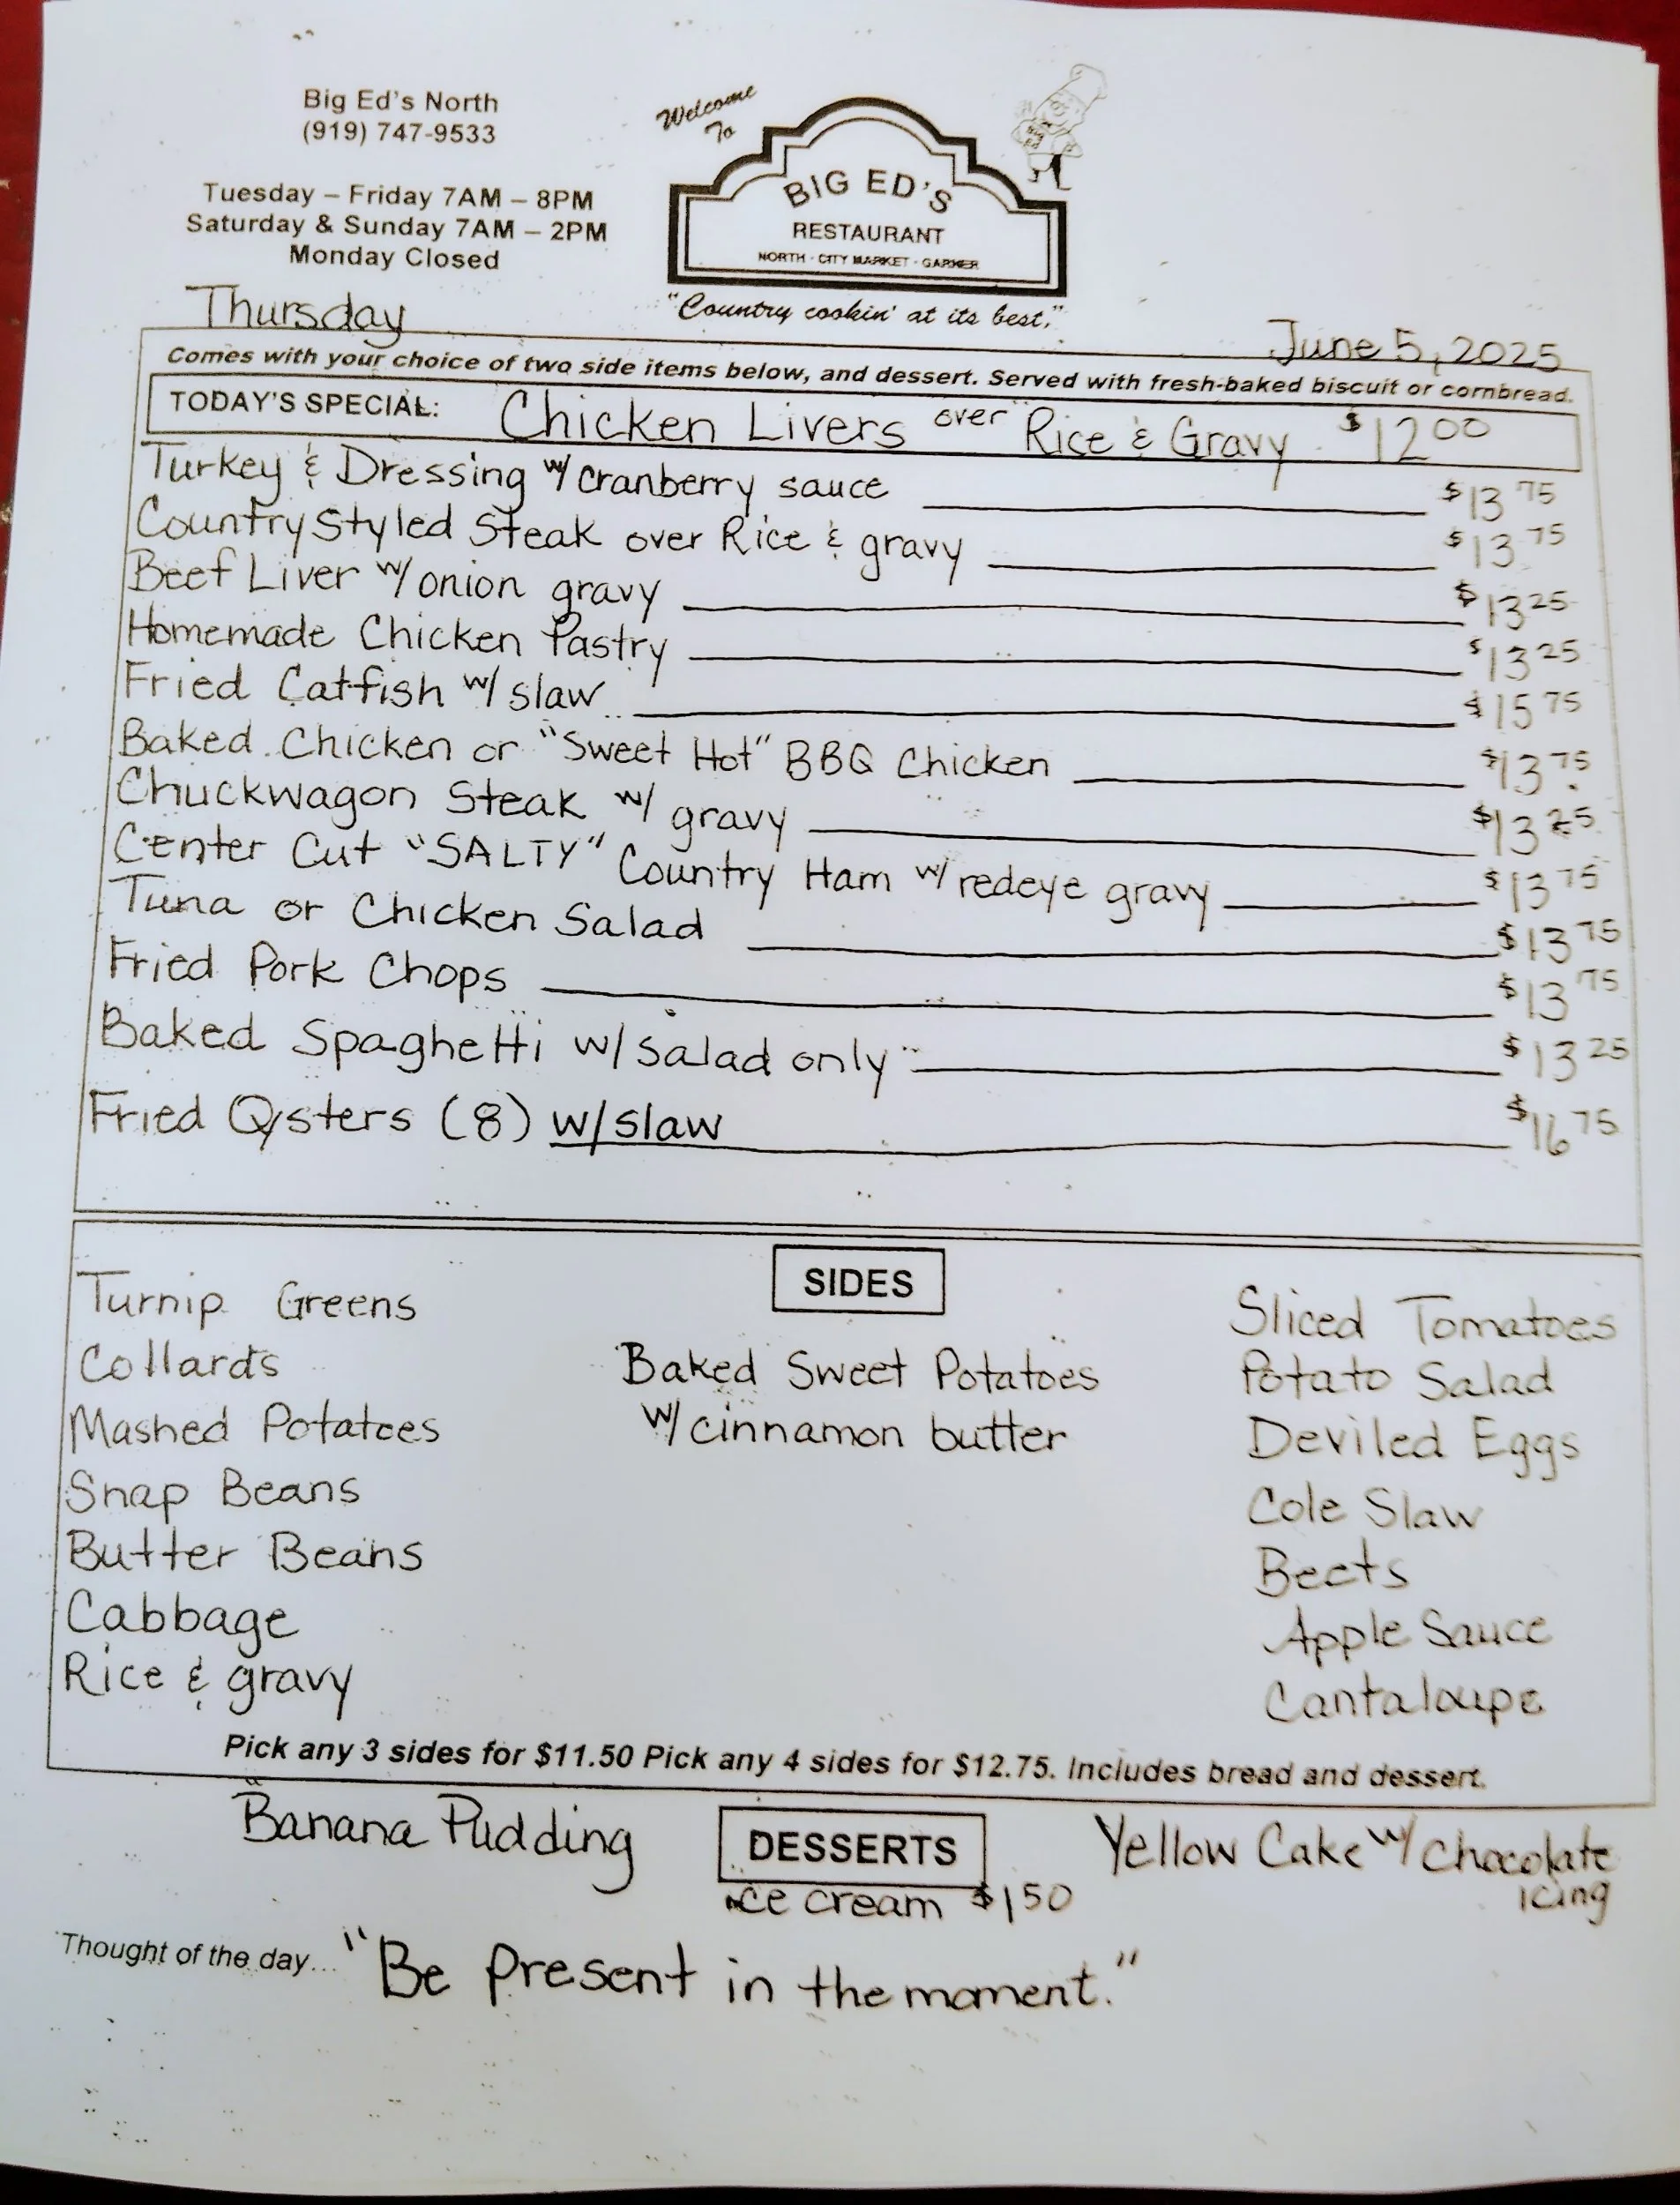 Big Ed's North
(919) 747-9533
Tuesday – Friday 7AM – 8PM
Saturday & Sunday 7AM – 2PM
Monday Closed
Welcome
To
BIG ED'S
RESTAURANT
NORTH · CITY MARKET · GARNER
"Country cookin' at its best."
Thursday
June 5, 2025
Comes with your choice of two side items below, and dessert. Served with fresh-baked biscuit or cornbread.
TODAY'S SPECIAL: Chicken Livers over Rice & Gravy $12 00
Turkey & Dressing w/ cranberry sauce $13 75
Country Styled Steak over Rice & gravy $13 75
Beef Liver w/ onion gravy $13 25
Homemade Chicken Pastry $13 25
Fried Catfish w/ slaw $15 75
Baked Chicken or "Sweet Hot" BBQ Chicken $13 75
Chuckwagon Steak w/ gravy $13 25
Center Cut "SALTY" Country Ham w/ redeye gravy $13 75
Tuna or Chicken Salad $13 75
Fried Pork Chops $13 75
Baked Spaghetti w/ salad only $13 25
Fried Oysters (8) w/slaw $16 75
SIDES
Turnip Greens
Collards
Mashed Potatoes
Snap Beans
Butter Beans
Cabbage
Rice & gravy
Baked Sweet Potatoes
w/ cinnamon butter
Sliced Tomatoes
Potato Salad
Deviled Eggs
Cole Slaw
Beets
Apple Sauce
Cantaloupe
Pick any 3 sides for $11.50 Pick any 4 sides for $12.75. Includes bread and dessert.
Banana Pudding
DESSERTS
ice cream $1 50
Yellow Cake w/ Chocolate
icing
Thought of the day... "Be Present in the moment."